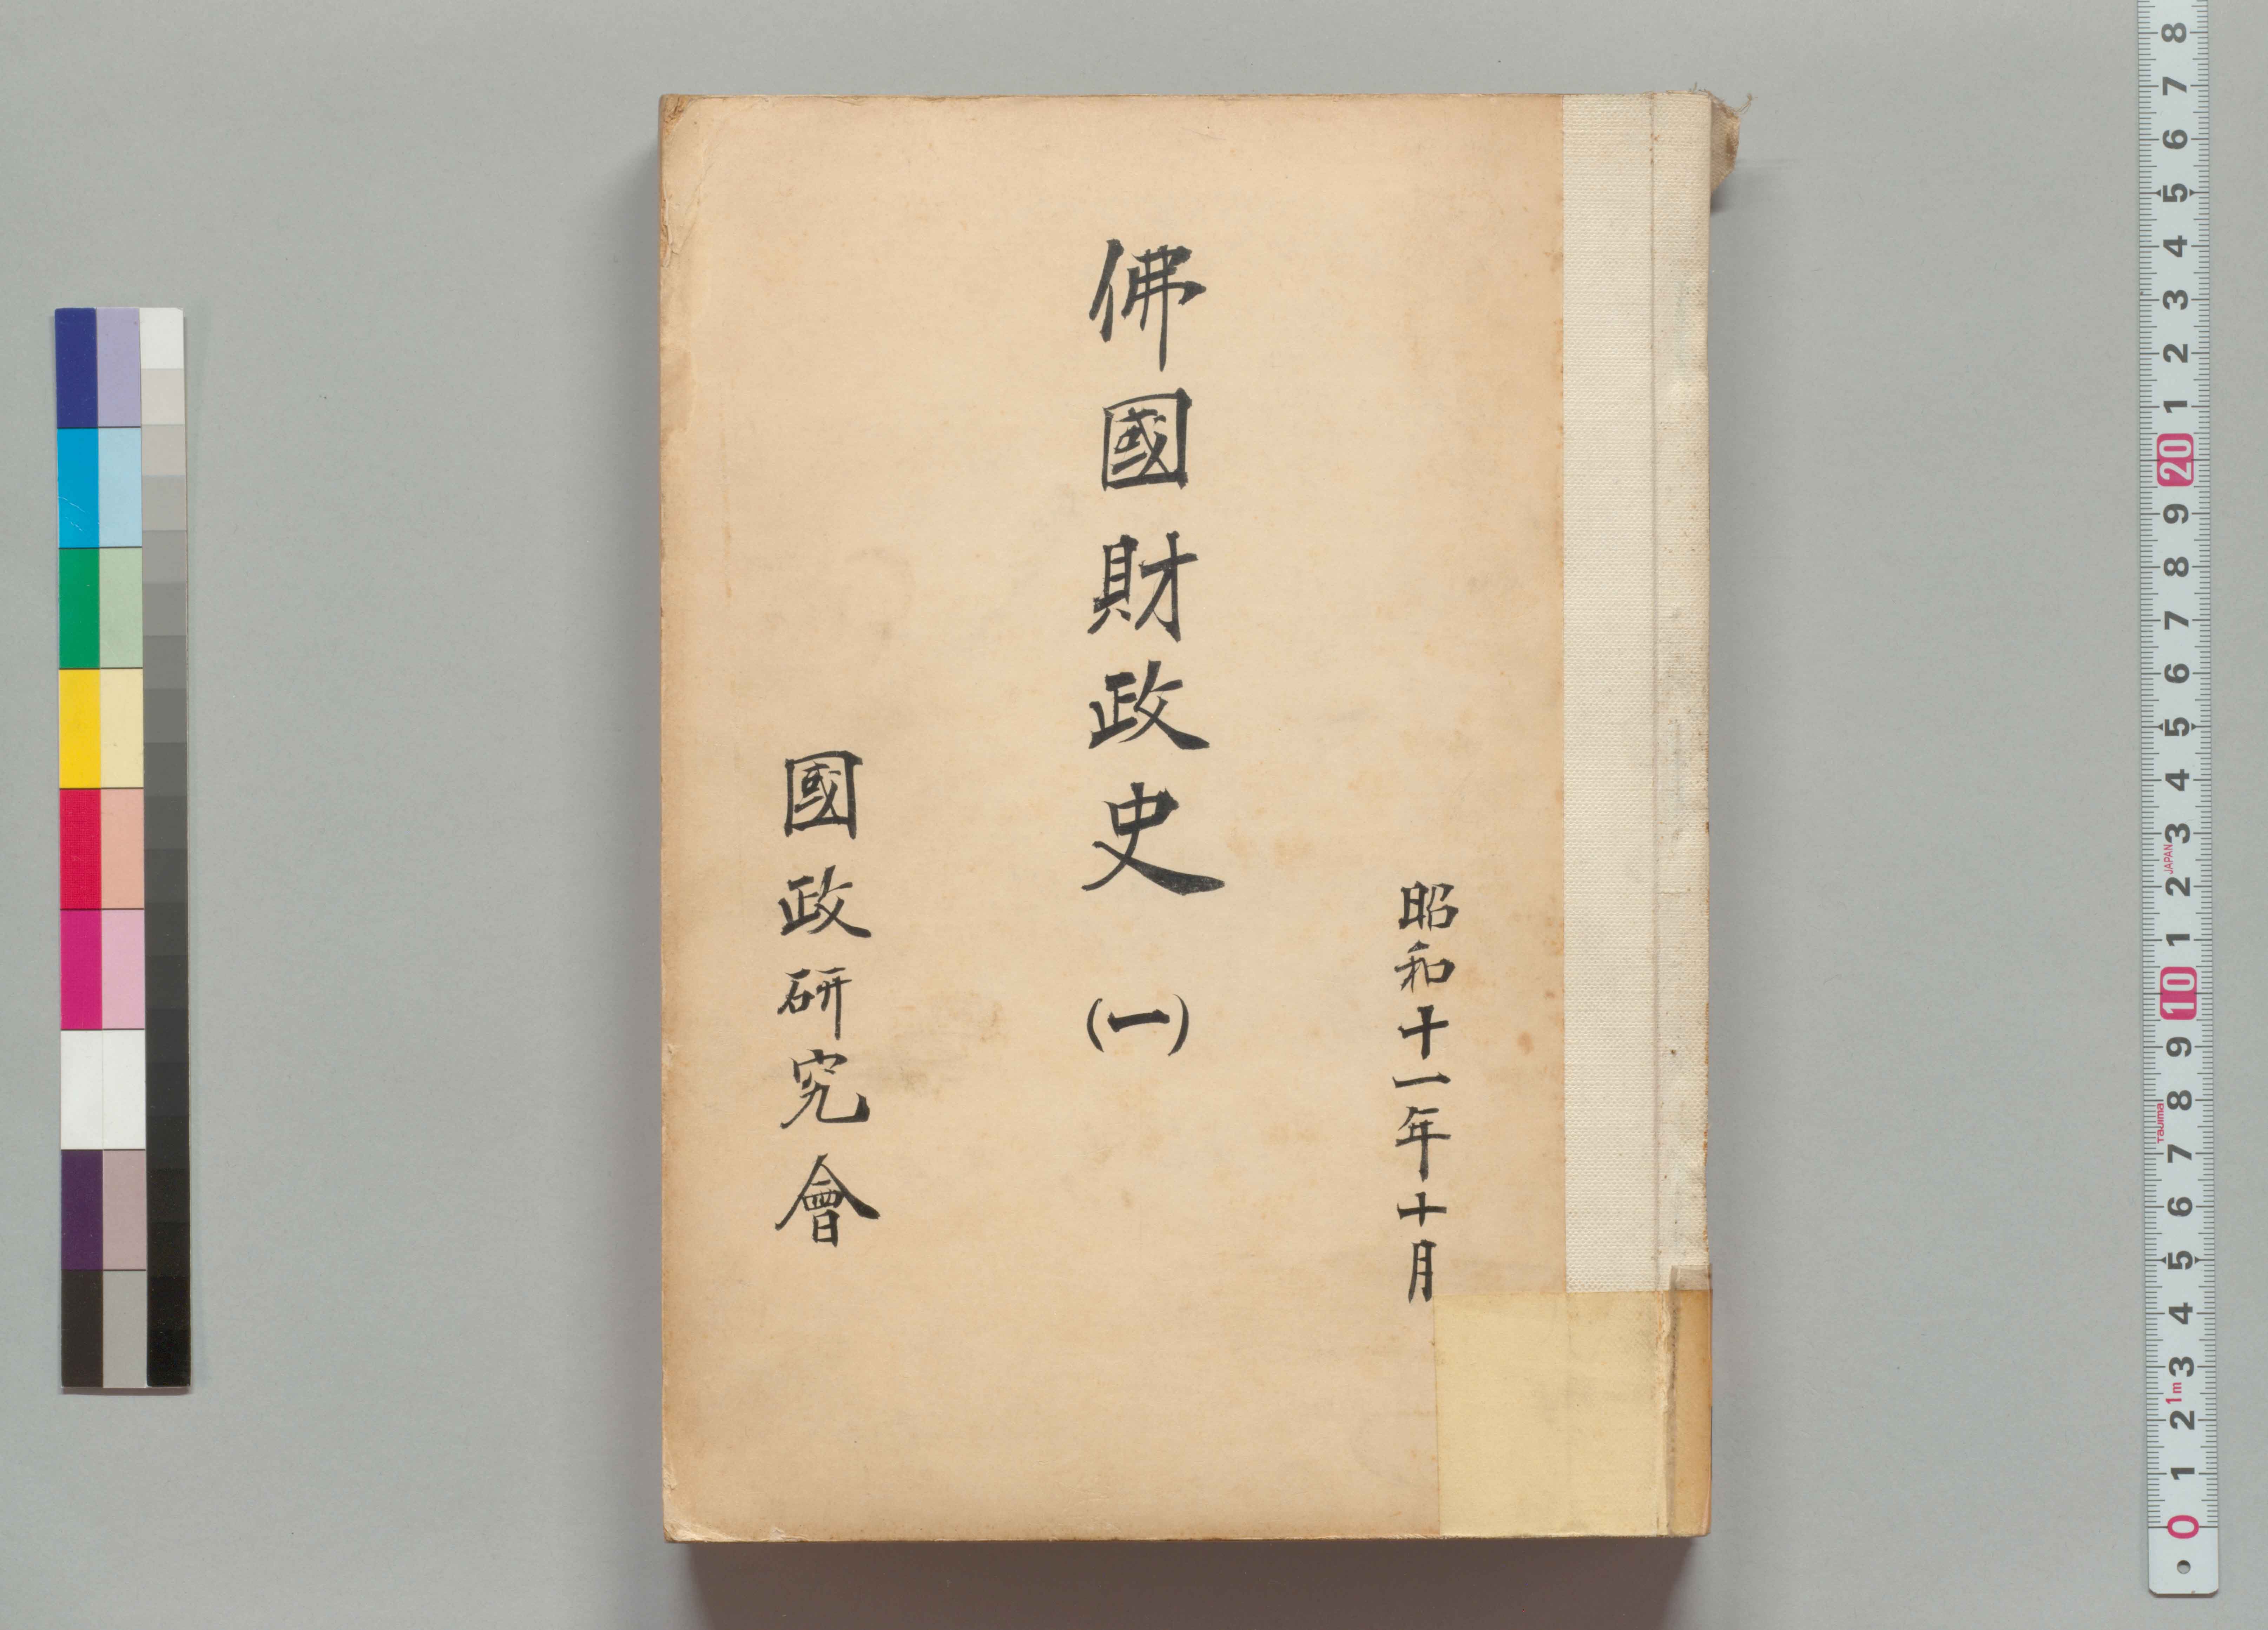 昭和十一年十月
佛國財政史 (一)
國政研究會
8
7
6
5
4
3
2
1
20
9
8
7
6
5
4
3
JAPAN
2
1
10
9
8
Tajima
7
6
5
4
3
1m
2
1
0